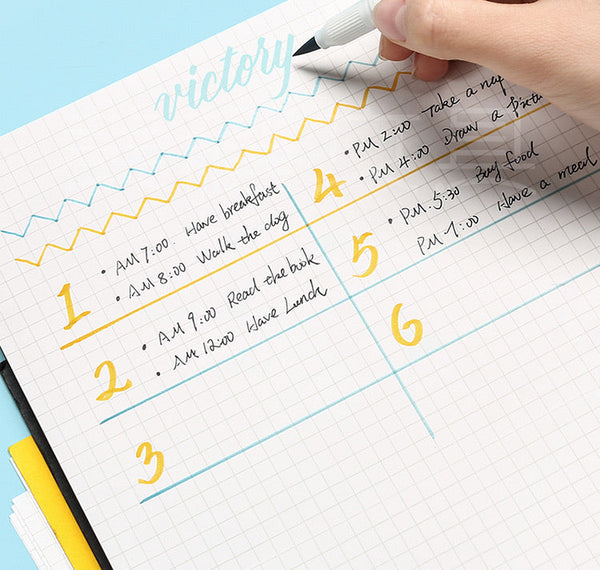 victory
1
• AM 7:00. Have breakfast
• AM 8:00 Walk the dog
2
• AM 9:00 Read the book
• AM 12:00 Have Lunch
3
4
• PM 2:00 Take a nap
• PM 4:00 Draw a
5
• PM. 5:30 Buy food
PM 7:00 Have a meal
6